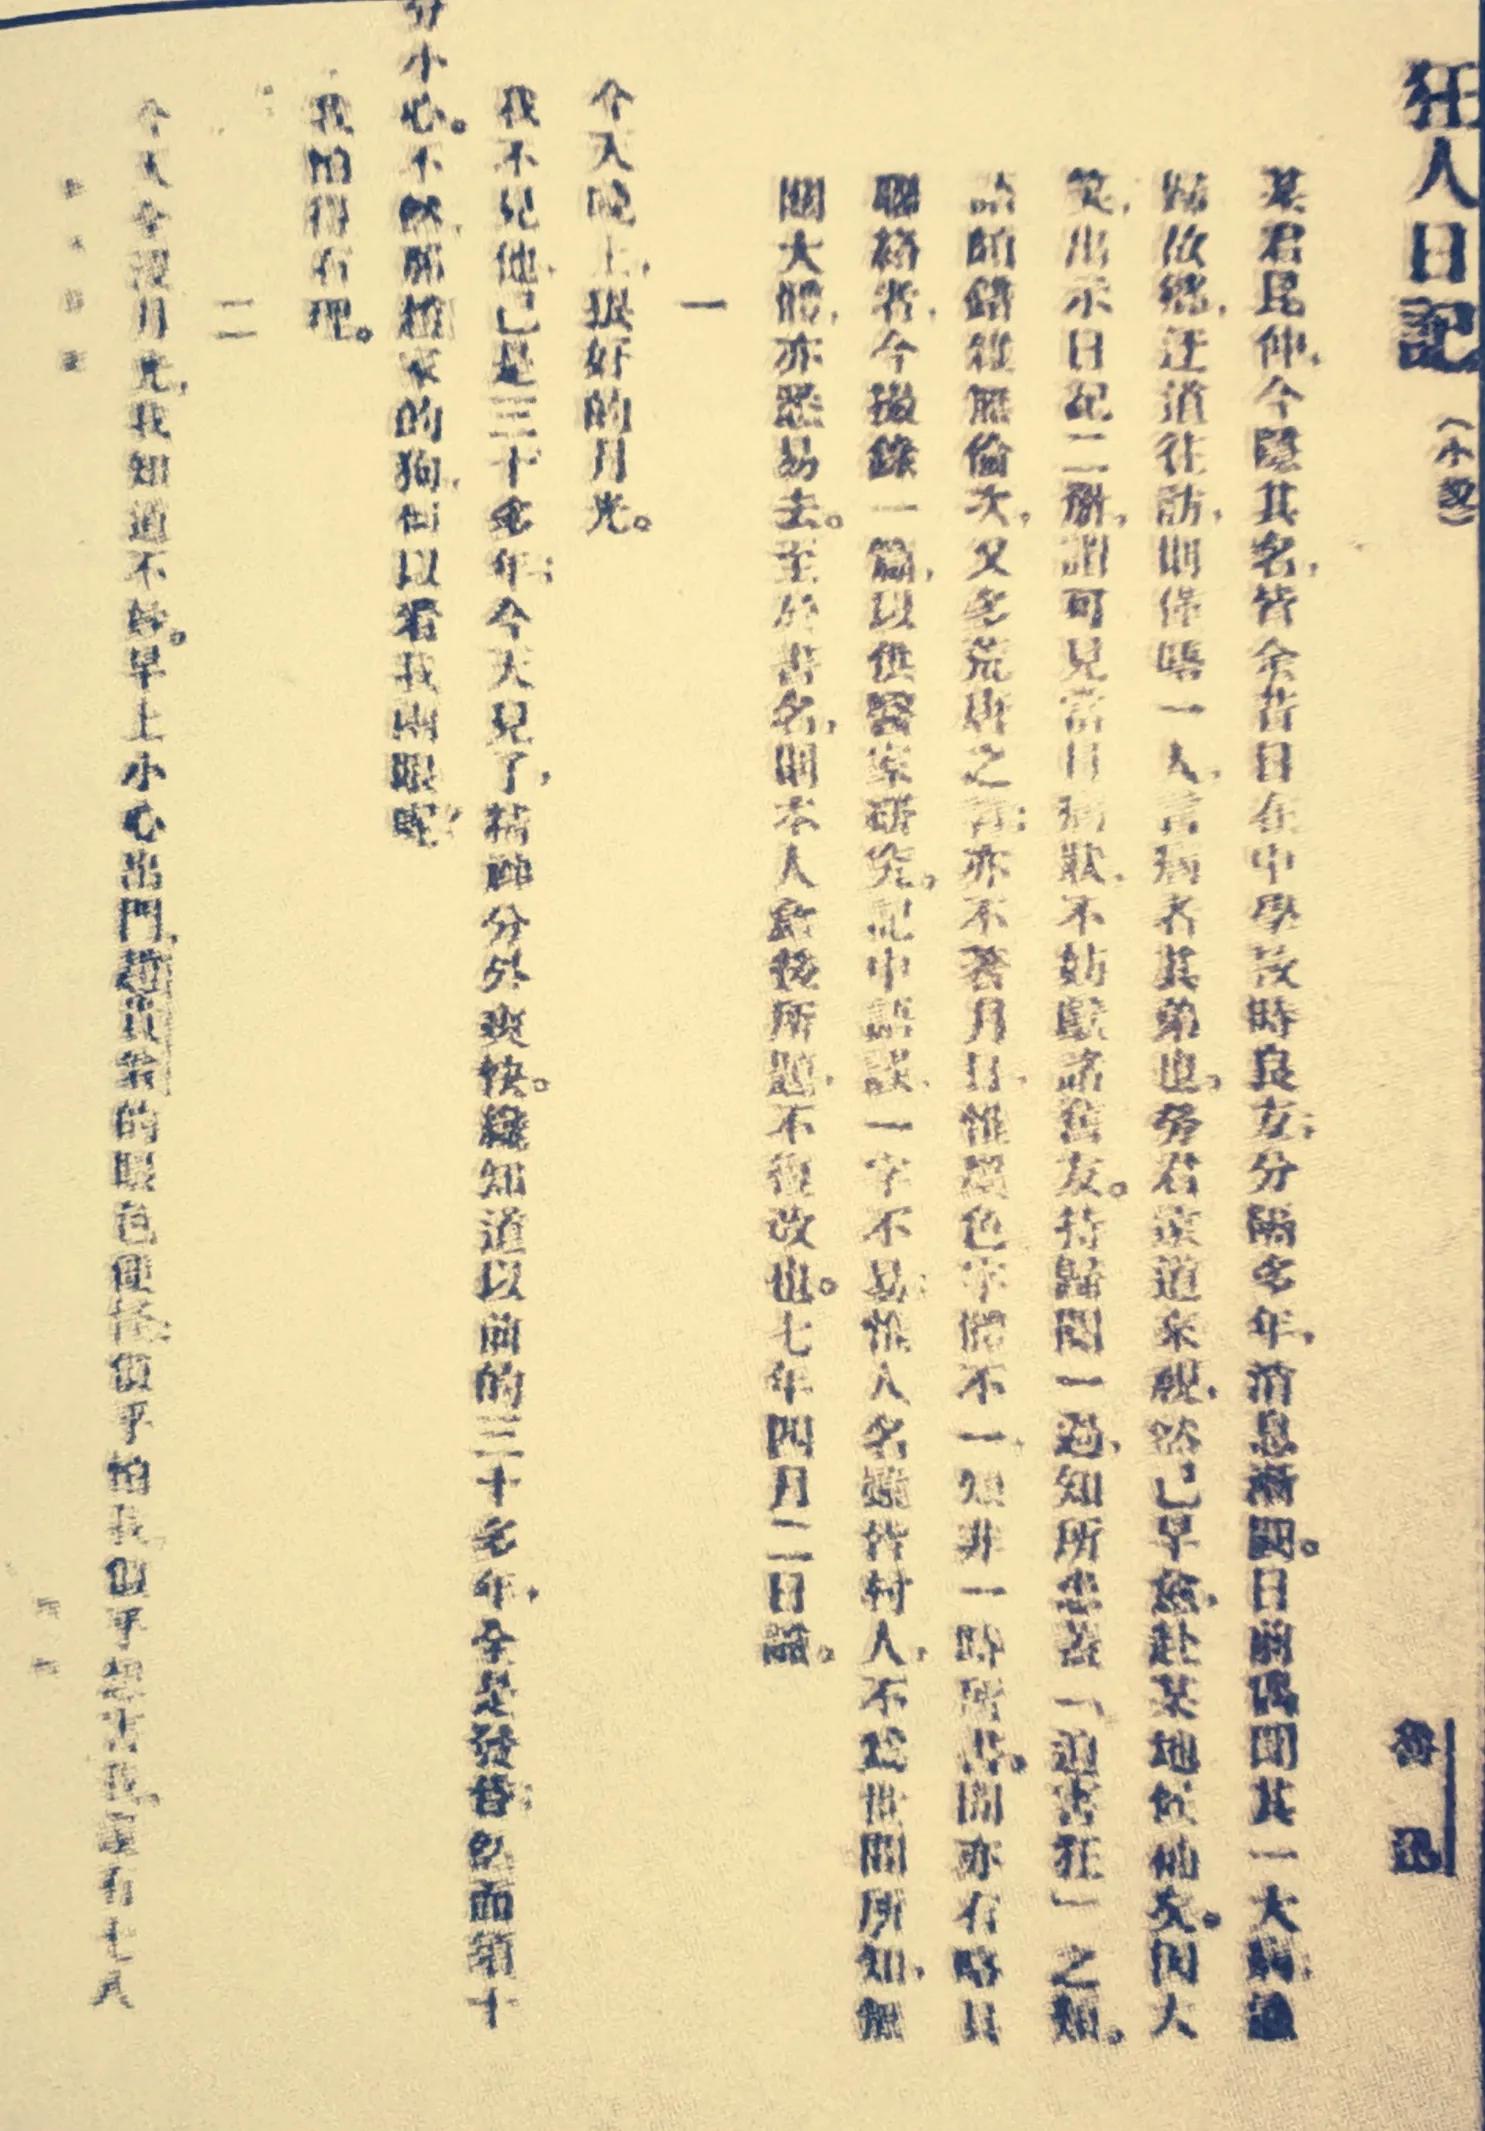 狂人日記 （小說） 魯迅
某君昆仲，今隱其名，皆余昔日在中學校時良友；分隔多年，消息漸闕。日前偶聞其一大病；適
歸故鄉，迂道往訪，則僅晤一人，言病者其弟也，勞君遠道來視，然已早愈，赴某地候補矣。因大
笑，出示日記二冊，謂可見當日病狀，不妨獻諸舊友。持歸閱一過，知所患蓋「迫害狂」之類。
語頗錯雜無倫次，又多荒唐之言；亦不著月日，惟墨色字體不一，知非一時所書。間亦有略具
聯絡者，今撮錄一篇，以供醫家研究。記中語誤，一字不易；惟人名雖皆村人，不爲世間所知，無
關大體，亦悉易去。至於書名，則本人愈後所題，不復改也。七年四月二日識。
一
今天晚上，狠好的月光。
我不見他，已是三十多年；今天見了，精神分外爽快。纔知道以前的三十多年，全是發昏；然而須十
分小心。不然，那趙家的狗，何以看我兩眼呢？
我怕得有理。
二
今天全沒月光，我知道不妙。早上小心出門，趙貴翁的眼色便怪：似乎怕我，似乎想害我。還有七八